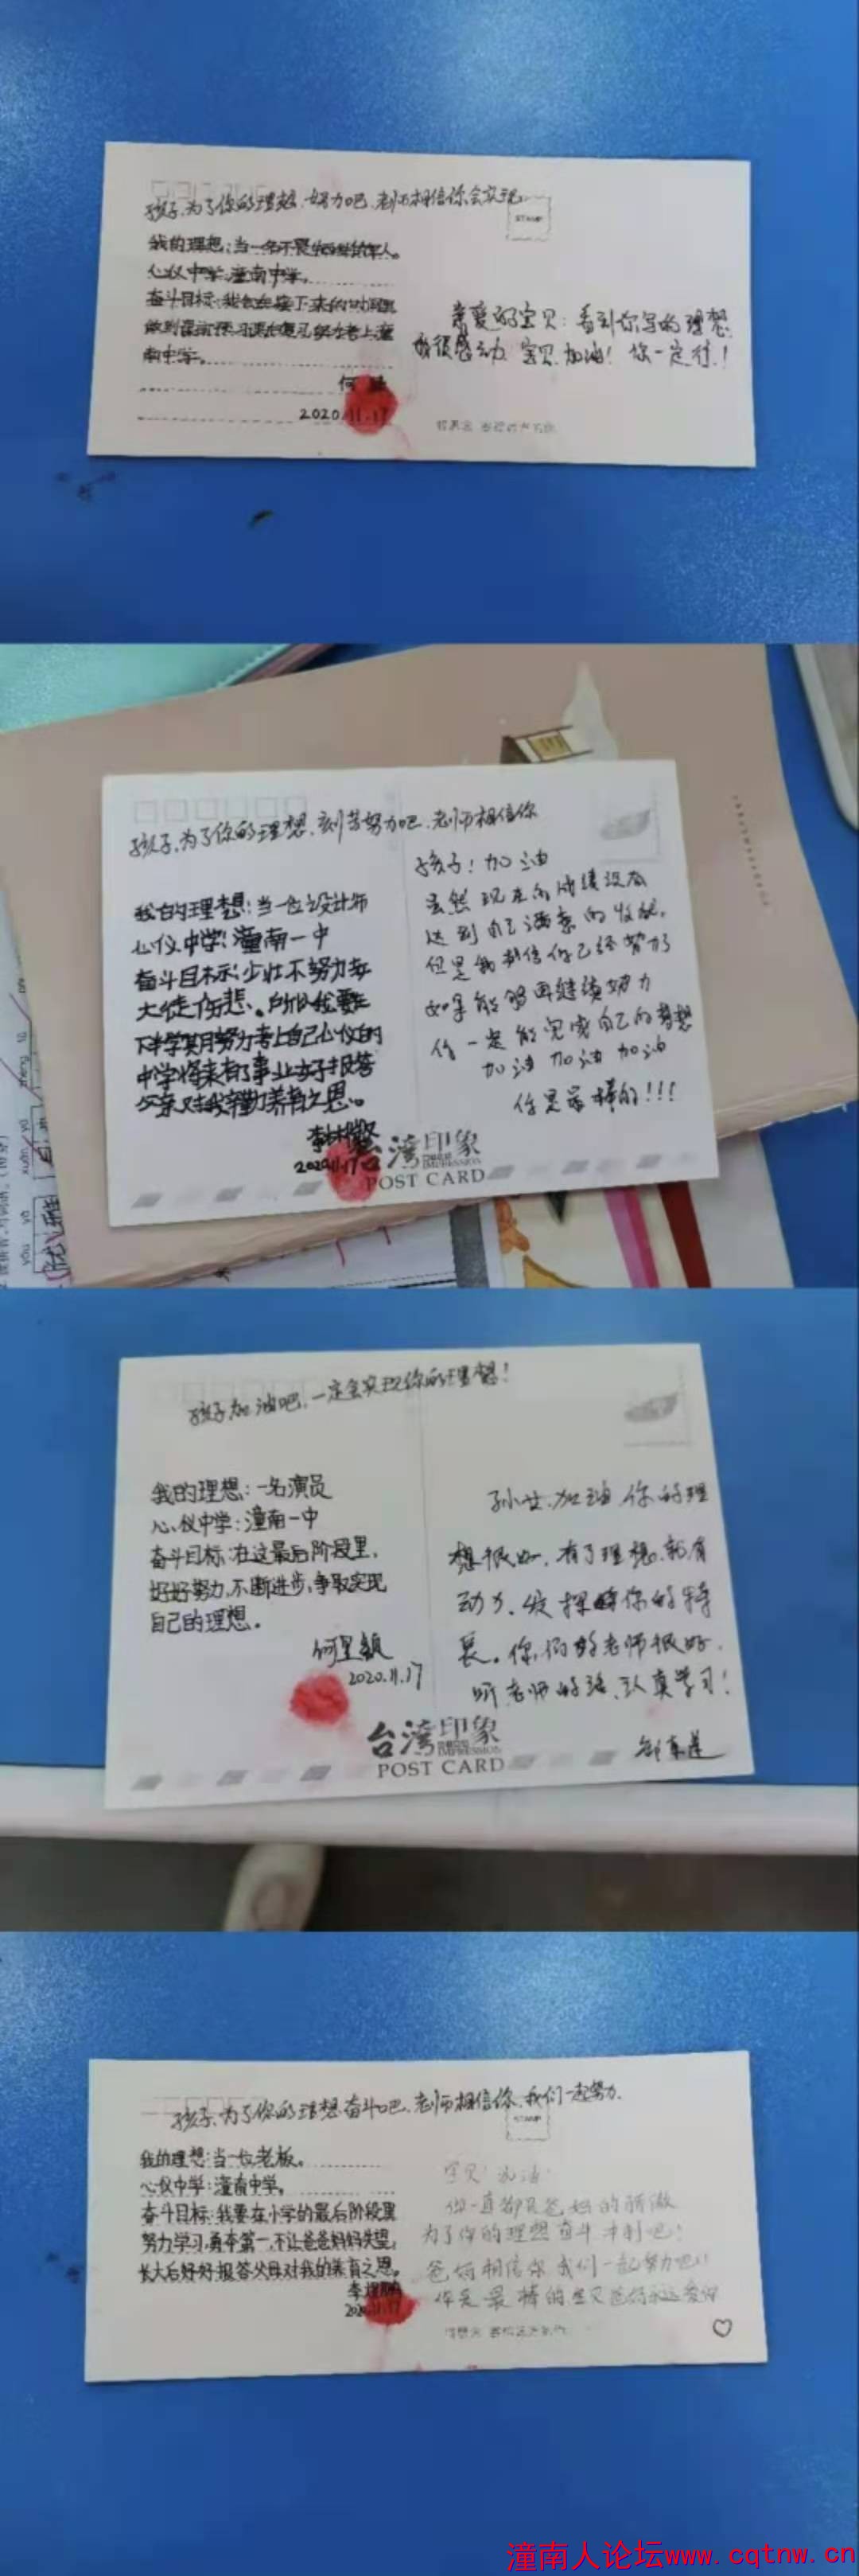 孩子,为了你的理想,努力吧,老师相信你会实现。
STAMP
我的理想:当一名不畏牺牲的军人。
心仪中学:潼南中学。
奋斗目标:我会在接下来的时间里
做到课前预习课后复习努力考上潼
南中学。
何
2020.11.17
亲爱的宝贝:看到你写的理想,
我很感动,宝贝加油!你一定行!
孩子,为了你的理想,刻苦努力吧,老师相信你
我的理想:当一位设计师
心仪中学:潼南一中
奋斗目标:少壮不努力老
大徒伤悲。所以我要在
下半学期努力考上自己心仪的
中学将来有了事业好好报答
父亲对我辛勤养育之恩。
2020.11.17
孩子!加油
虽然现在的成绩没有
达到自己满意的收获,
但是我相信你已经努力了
如果能够再继续努力
你一定能完成自己的梦想
加油 加油 加油
你是最棒的!!!
台湾印象
IMPRESSION
POST CARD
孩子加油吧,一定会实现你的理想!
我的理想:一名演员
心仪中学:潼南一中
奋斗目标:在这最后阶段里,
好好努力,不断进步,争取实现
自己的理想。
何星颖
2020.11.17
孙女,加油,你的理
想很好,有了理想,就有
动力,发挥你的特
长。你们的老师很好,
听老师的话,认真学习!
台湾印象
IMPRESSION
POST CARD
孩子,为了你的理想奋斗吧,老师相信你,我们一起努力.
STAMP
我的理想:当一位老板。
心仪中学:潼南中学。
奋斗目标:我要在小学的最后阶段里
努力学习,勇夺第一,不让爸爸妈妈失望,
长大后好好报答父母对我的养育之恩。
2020.11.17
宝贝!加油!
你一直都是爸妈的骄傲
为了你的理想奋斗冲刺吧!
爸妈相信你,我们一起努力吧!
你是最棒的,宝贝爸妈永远爱你
潼南人论坛www.cqtnw.cn